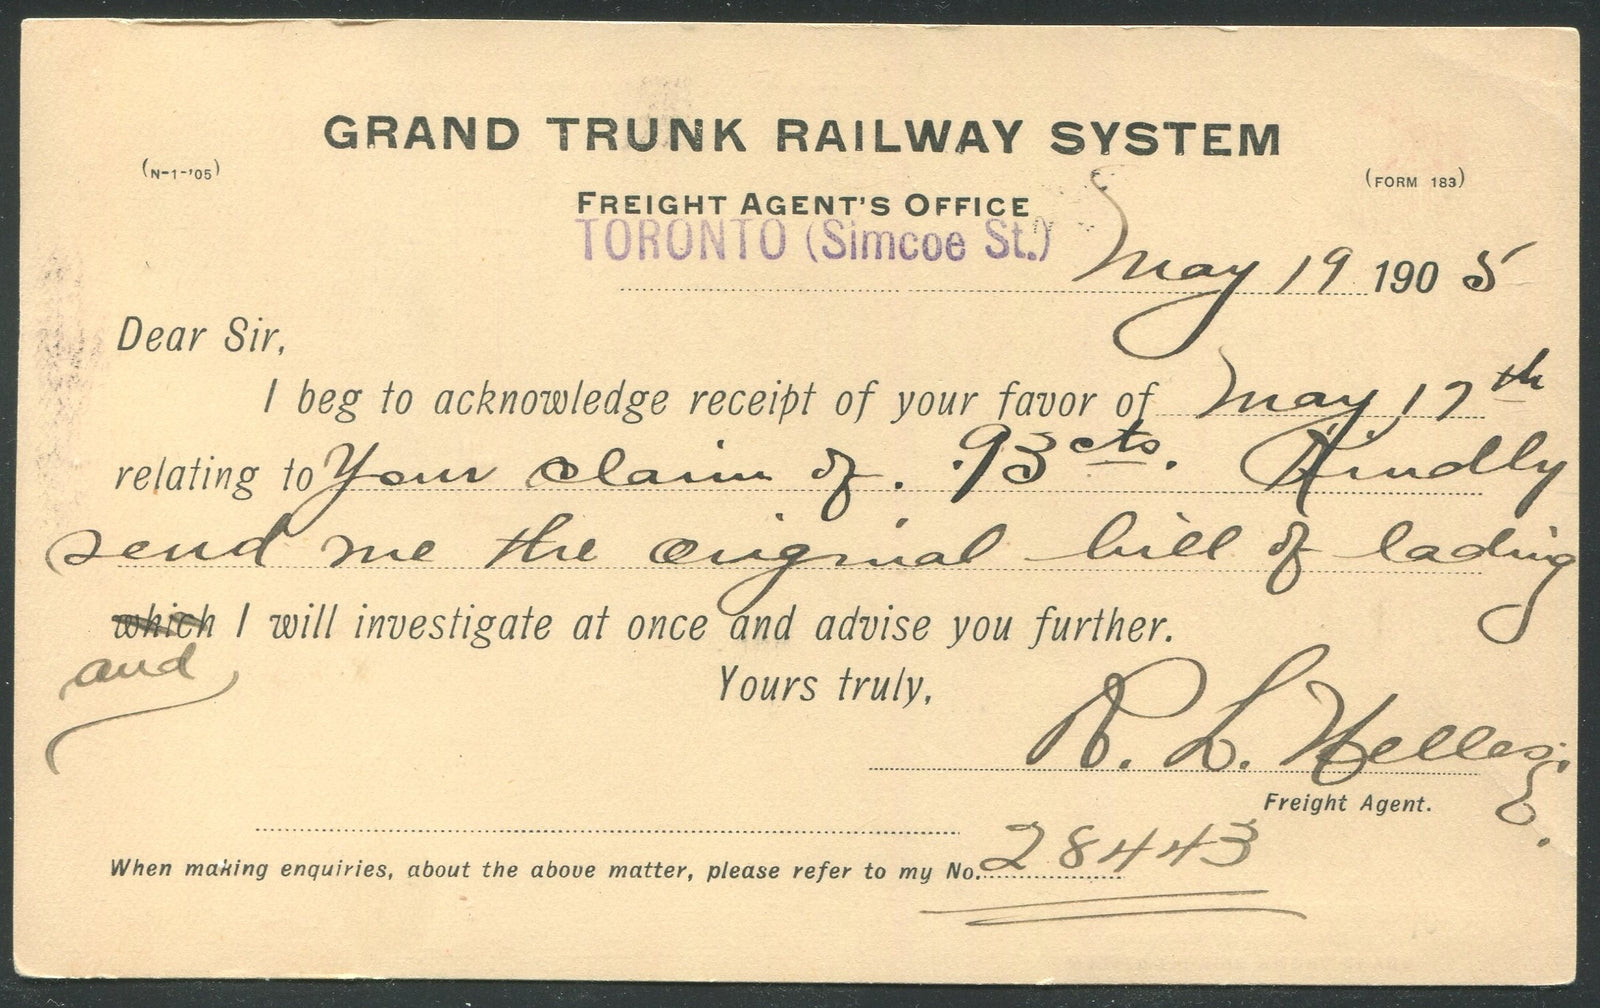 GRAND TRUNK RAILWAY SYSTEM
(N-1-'05)
(FORM 183)
FREIGHT AGENT'S OFFICE
TORONTO (Simcoe St.)
May 19 1905
Dear Sir,
I beg to acknowledge receipt of your favor of May 17th
relating to Your claim of .93cts. Kindly
send me the original bill of lading
which I will investigate at once and advise you further.
and
Yours truly,
R. L. Nelles.
Freight Agent.
E.
When making enquiries, about the above matter, please refer to my No. 28443